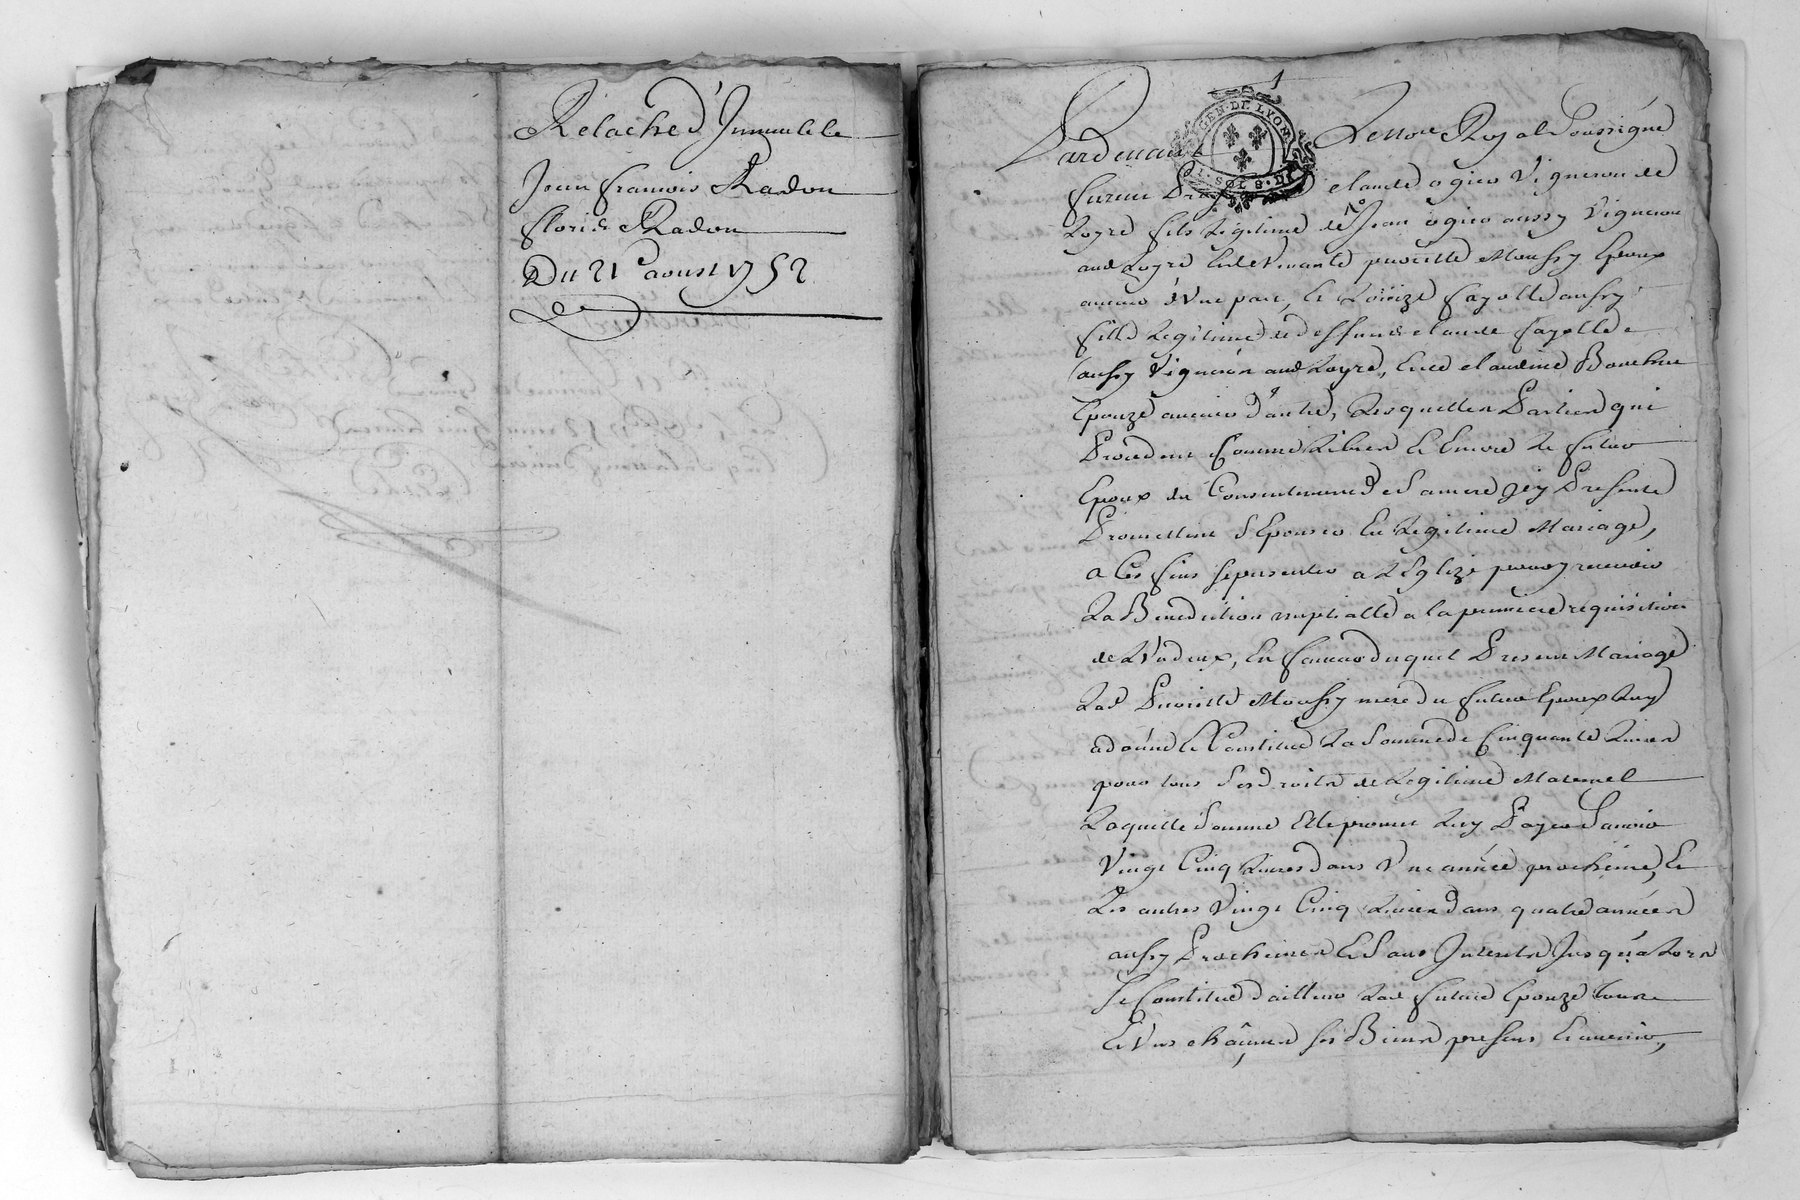 Relache d'Immeuble
Jean francois Radon
floris Radon
Du 21e aoust 1752
1
GEN. DE LYON
SOLS
Pardevant Le Nore Royal Soussigné
furent claude ogier Vigneron de
Loyre fils Legitime de Jean ogier aussy Vigneron
aud Loyre Moussy Epoux
avenir d'une part, Et Loüize fayolle aussy
fille Legitime de deffunt claude fayolle
aussy Vigneron aud Loyre, Et de claudine
Epouze avenir d'autre, Lesquelles Parties qui
Procedent comme Libres Et Encore Le futur
Epoux du Consentement de Sa mere icy Presente
Promettent S'Epouser En Legitime Mariage,
a Ces fins Se presenter a L'Eglize pour y recevoir
La Benediction nuptialle a la premiere requisition
de L'un d'eux, En faveur duquel Present Mariage
Lad Moussy mere du futur Epoux Luy
a donné Et Constitué La Somme de Cinquante Livres
pour tous Ses droits de Legitime Maternel
Laquelle Somme Elle promet Luy Payer Savoir
Vingt Cinq Livres dans Une année prochaine, Et
Les autres Vingt Cinq Livres dans quatre années
aussy Prochaines Et Sans Interets Jusqu'a Lors
Se Constitue d'ailleurs Lad future Epouze tous
Et Uns châcuns ses Biens presens Et avenir,